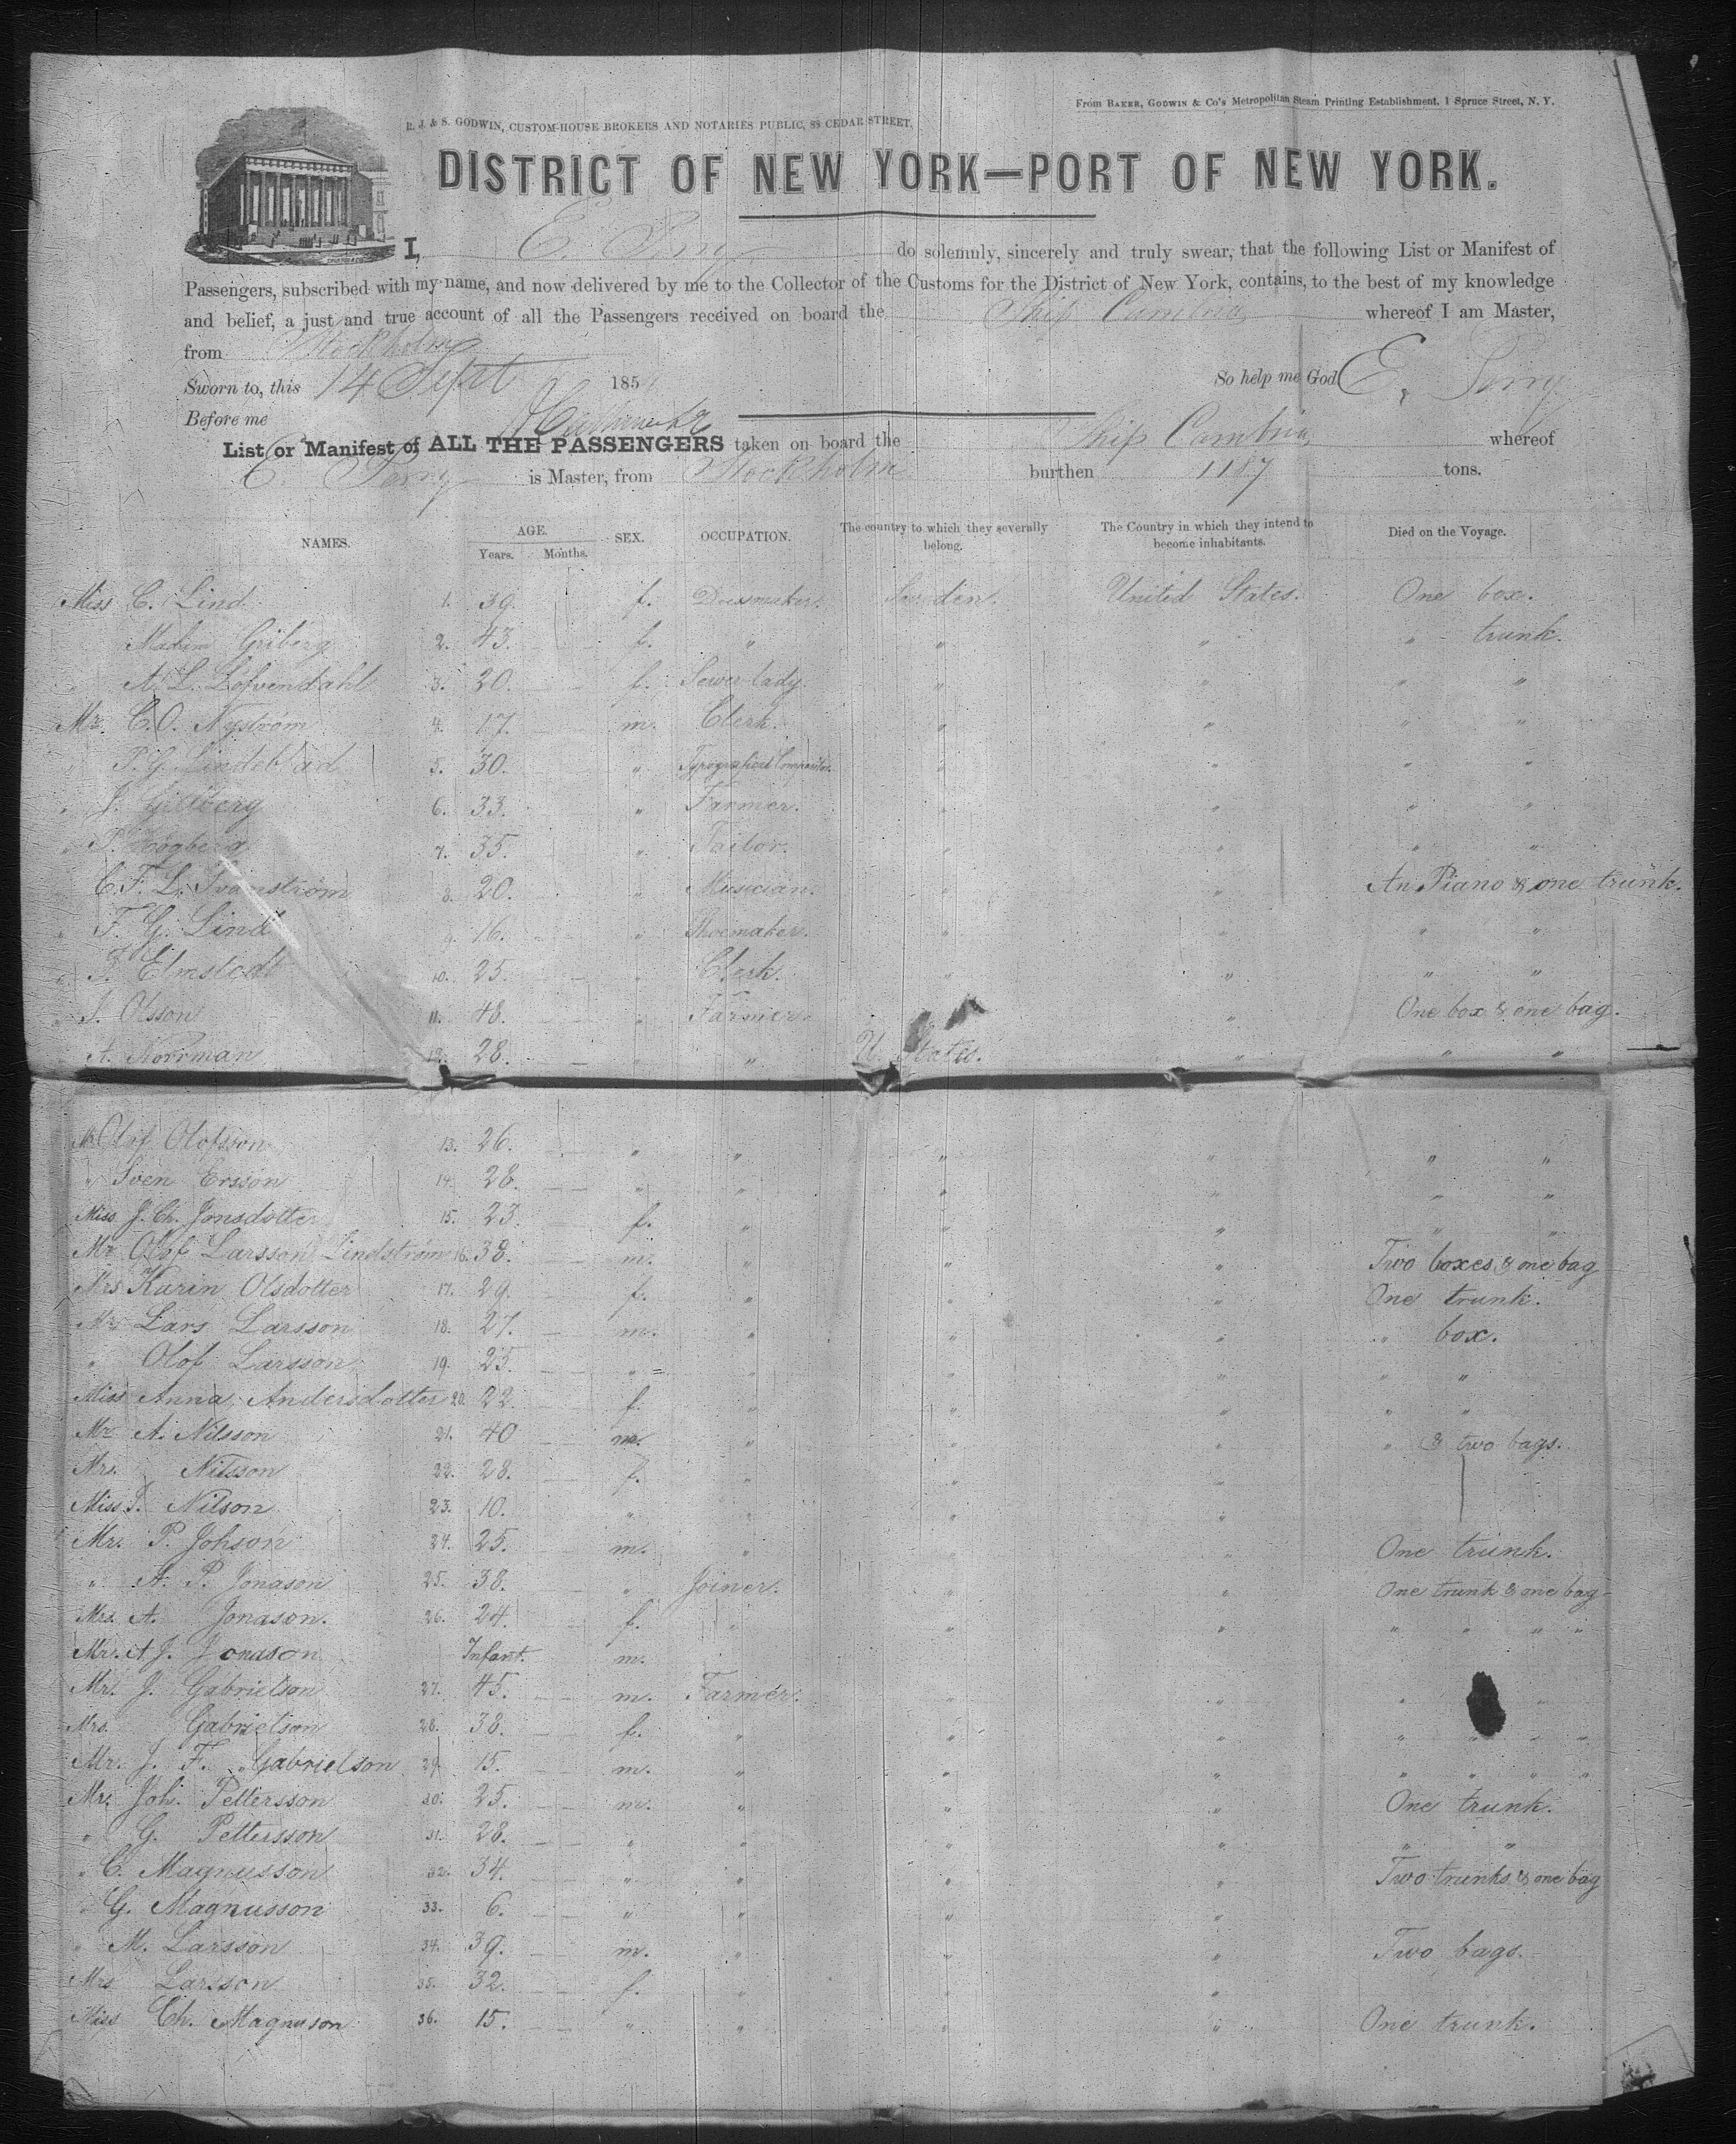 From BAKER, GODWIN & Co's Metropolitan Steam Printing Establishment, 1 Spruce Street, N. Y.
R. J. & S. GODWIN, CUSTOM-HOUSE BROKERS AND NOTARIES PUBLIC, 85 CEDAR STREET,
DISTRICT OF NEW YORK—PORT OF NEW YORK.
I, E. Perry do solemnly, sincerely and truly swear, that the following List or Manifest of
Passengers, subscribed with my name, and now delivered by me to the Collector of the Customs for the District of New York, contains, to the best of my knowledge
and belief, a just and true account of all the Passengers received on board the Ship Cambria whereof I am Master,
from Stockholm
Sworn to, this 14 Sept 185 So help me God. E. Perry
Before me
List or Manifest of ALL THE PASSENGERS taken on board the Ship Cambria whereof
E. Perry is Master, from Stockholm burthen 1187 tons.
NAMES. AGE. Years. Months. SEX. OCCUPATION. The country to which they severally belong. The Country in which they intend to become inhabitants. Died on the Voyage.
Miss C. Lind 1. 39. f. Dressmaker. Sweden. United States. One box.
Madam Griberg 2. 43. f. " " " " trunk.
" A. L. Löfvendahl 3. 20. f. Sewer-lady " " " "
Mr. C. O. Nyström 4. 17. m. Clerk. " " " "
" P. G. Lindeblad 5. 30. " Typografical Compositor " " " "
" J. Gillberg 6. 33. " Farmer. " " " "
" P. Högberg 7. 35. " Tailor. " " " "
C. F. L. Svanström 8. 20. " Musician. " " An Piano & one trunk.
" F. G. Lind 9. 16. " Shoemaker. " " " "
" F. Elmstedt 10. 25. " Clerk. " " " "
" J. Olsson 11. 48. " Farmer. " One box & one bag.
" A. Norrman 12. 28. " " U. States. " " "
Mr Olof Olofsson 13. 26. " " " " " "
" Sven Ersson 14. 28. " " " " " "
Miss J. Ch. Jonsdotter 15. 23. f. " " " " "
Mr Olof Larsson Lindström 16. 38. m. " " " Two boxes & one bag
Mrs Karin Olsdotter 17. 29. f. " " " One trunk.
Mr Lars Larsson 18. 27. m. " " " " box.
" Olof Larsson 19. 25. " " " " " "
Miss Anna Andersdotter 20. 22. f. " " " " "
Mr A. Nilsson 21. 40 m. " " " " & two bags.
Mrs. Nilsson 22. 28. f. " " "
Miss J. Nilson 23. 10. " " " "
Mr. P. Johson 24. 25. m. " " " One trunk.
" A. P. Jonason 25. 38. " Joiner. " " One trunk & one bag
Mrs. A. Jonason. 26. 24. f. " " " " " " "
Mr. A J. Jonason Infant. m.
Mr. J. Gabrielson 27. 45. m. Farmer. " " " "
Mrs. Gabrielson 28. 38. f. " " " " " " "
Mr. J. F. Gabrielson 29. 15. m. " " " " " " "
Mr. Joh. Pettersson 30. 25. m. " " " One trunk.
" G. Pettersson 31. 28. " " " " " "
" C. Magnusson 32. 34. " " " " Two trunks & one bag
" G. Magnusson 33. 6. " " " "
" M. Larsson 34. 39. m. " " " Two bags.
Mrs Larsson 35. 32. f. " " "
Miss Ch. Magnuson 36. 15. " " " " One trunk.